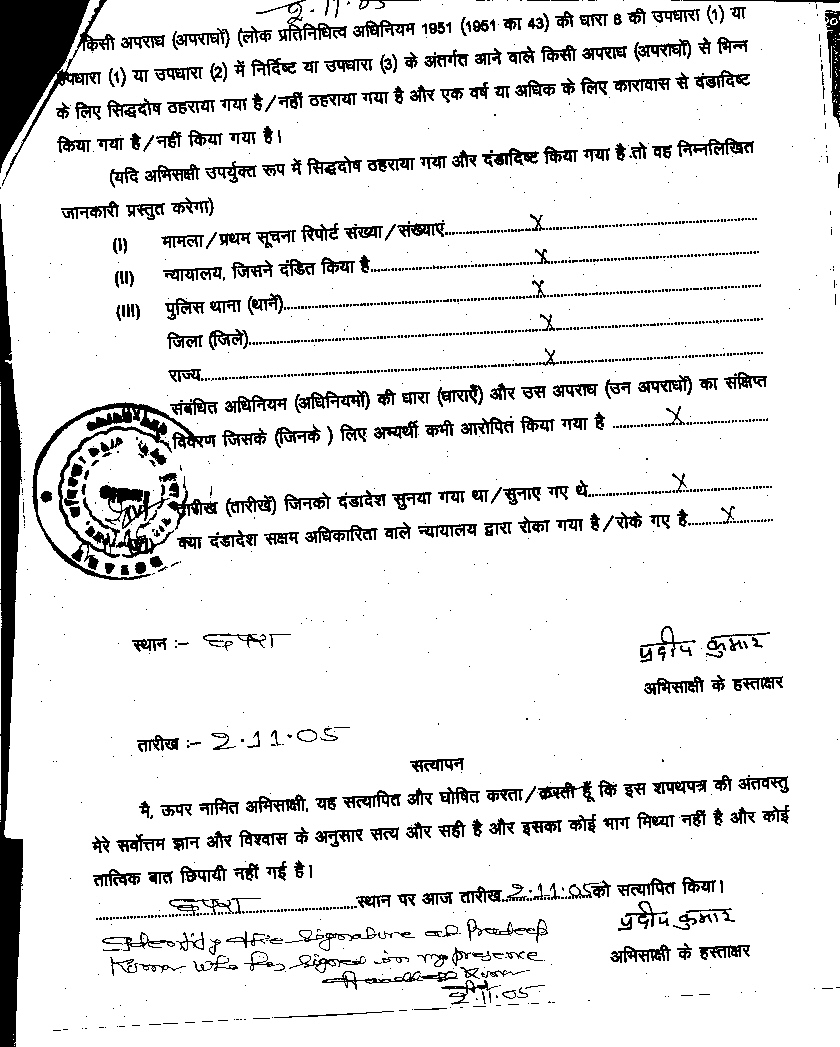 2.11.05
किसी अपराध (अपराधों) (लोक प्रतिनिधित्व अधिनियम 1951 (1951 का 43) की धारा 8 की उपधारा (1) या
उपधारा (1) या उपधारा (2) में निर्दिष्ट या उपधारा (3) के अंतर्गत आने वाले किसी अपराध (अपराधों) से भिन्न
के लिए सिद्धदोष ठहराया गया है/नहीं ठहराया गया है और एक वर्ष या अधिक के लिए कारावास से दंडादिष्ट
किया गया है/नहीं किया गया है।
(यदि अभिसक्षी उपर्युक्त रूप में सिद्धदोष ठहराया गया और दंडादिष्ट किया गया है तो वह निम्नलिखित
जानकारी प्रस्तुत करेगा)
(I) मामला/प्रथम सूचना रिपोर्ट संख्या/संख्याएं.......X.......
(II) न्यायालय, जिसने दंडित किया है.......X.......
(III) पुलिस थाना (थाने).......X.......
जिला (जिले).......X.......
राज्य.......X.......
संबंधित अधिनियम (अधिनियमों) की धारा (धाराएँ) और उस अपराध (उन अपराधों) का संक्षिप्त
विवरण जिसके (जिनके ) लिए अभ्यर्थी कभी आरोपित किया गया है .......X.......
तारीख (तारीखें) जिनको दंडादेश सुनया गया था/सुनाए गए थे.......X.......
क्या दंडादेश सक्षम अधिकारिता वाले न्यायालय द्वारा रोका गया है/रोके गए है.......X.......
NOTARY
स्थान :- छपरा
प्रदीप कुमार
अभिसाक्षी के हस्ताक्षर
तारीख :- 2.11.05
सत्यापन
मै, ऊपर नामित अभिसाक्षी, यह सत्यापित और घोषित करता/करती हूँ कि इस शपथपत्र की अंतवस्तु
मेरे सर्वोत्तम ज्ञान और विश्वास के अनुसार सत्य और सही है और इसका कोई भाग मिथ्या नहीं है और कोई
तात्विक बात छिपायी नहीं गई है।
छपरा.......स्थान पर आज तारीख 2.11.05 को सत्यापित किया।
प्रदीप कुमार
अभिसाक्षी के हस्ताक्षर
Identify the signature of Pradeep
Kumar who has signed in my presence
2.11.05